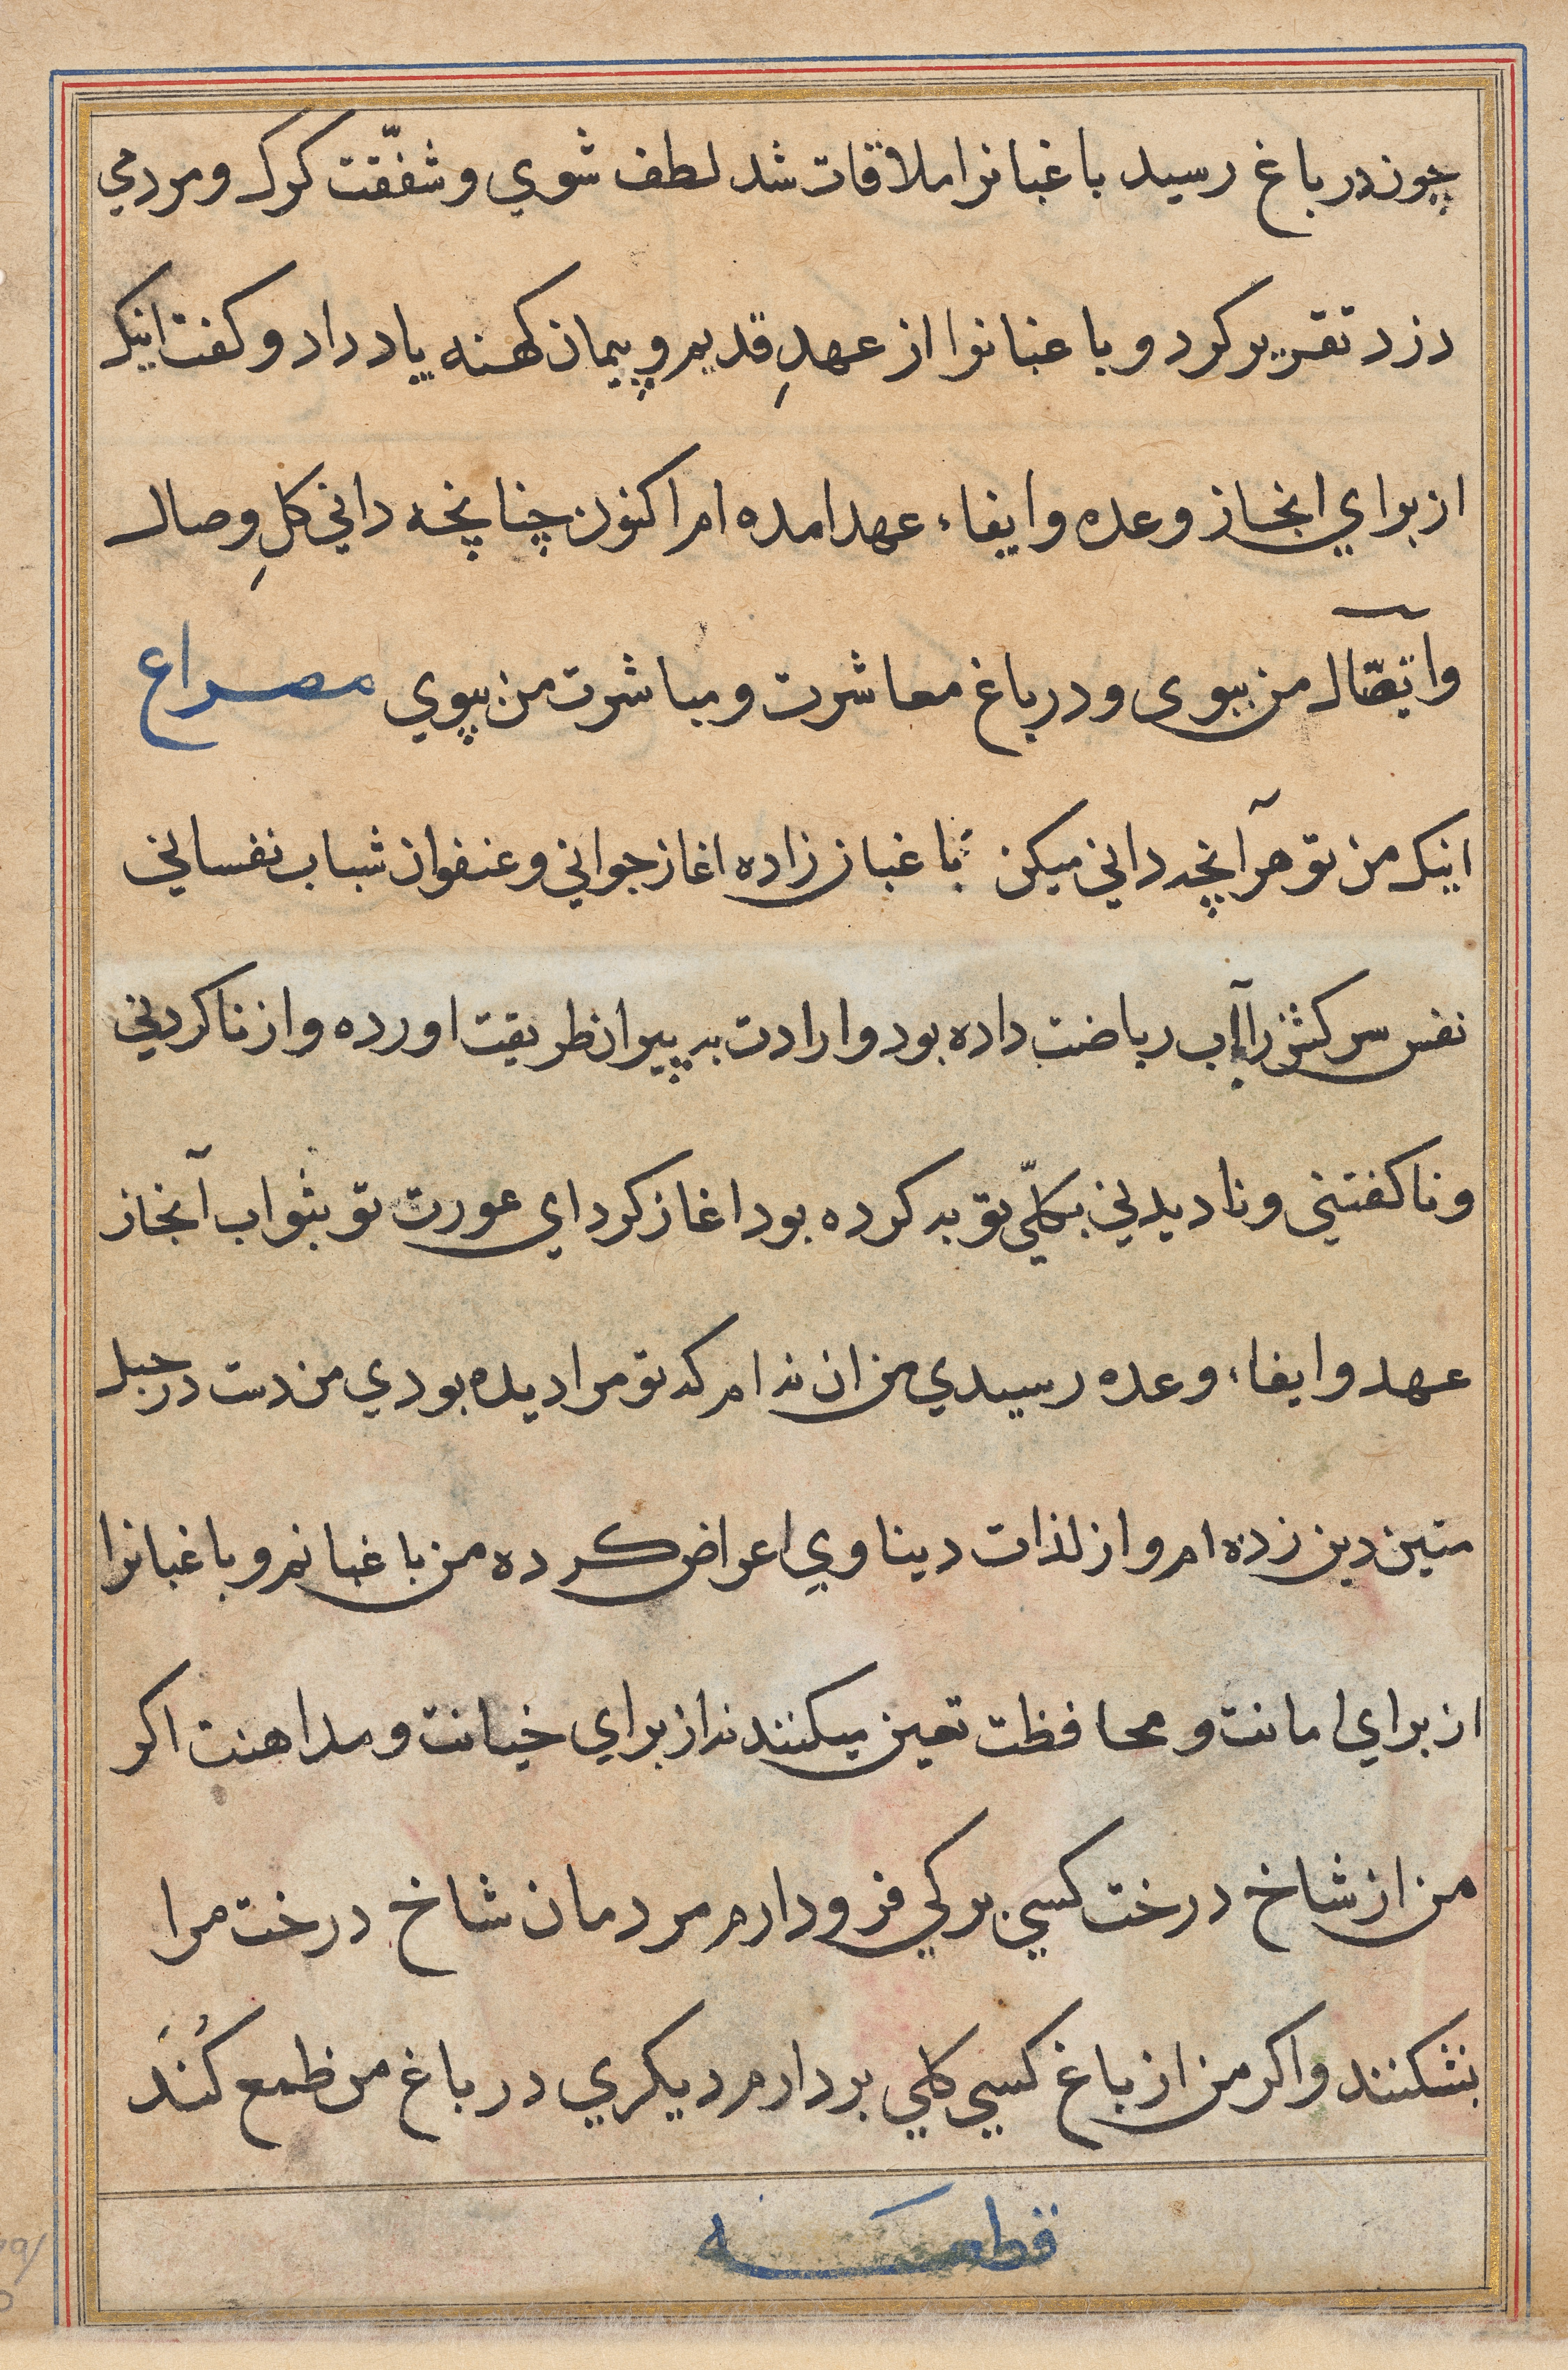 چون در باغ رسید باغبانرا ملاقات شد لطف شوي و شفّقت کرک و مردمي
دزد تقریر کرد و باغبانرا از عهدِ قدیم و پیمان کهنه یاد داد و کفت اینک
از براي انجاز وعده وایفاء عهد امده ام اکنون چنانچه داني کلِ وصال
واتّصّال من ببوی و در باغ معاشرت و مباشرت من بپوي مصراع
اینک من تو هرآنچه داني میکن باغبان زاده اغاز جواني و عنفوان شباب نفساني
نفس سرکش را آب ریاضت داده بود و ارادت به پیران طریقت اورده و از ناکردني
و ناکفتني و نادیدني بکلّي توبه کرده بود اغاز کرد اي عورت تو بثواب آنجاز
عهد وایفاء وعده رسیدي من ان نه ام که تو مرا دیده بودي من دست در حبل
متین دین زده ام و از لذات دیناوي اعراض کرده من باغبانم و باغبانرا
از براي امانت و محافظت تعین میکنند نه از براي خیانت و مداهنت اکر
من از شاخ درخت کسي برکي فرو دارم مردمان شاخ درخت مرا
بشکنند و اکر من از باغ کسي کلي بردارم دیکري در باغ من طمع کُنَد
قطعه